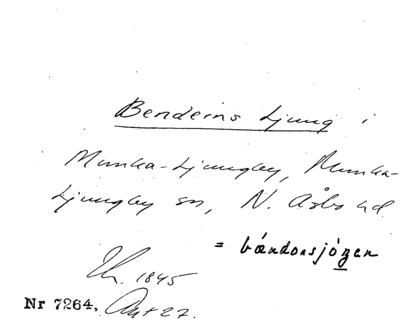 Bendeins Ljung i
Munka-Ljungby, Munka-
Ljungby sn, N. Åsbo hd
= bændonsjóȥen
1845
Nr 7264, Akt 27.